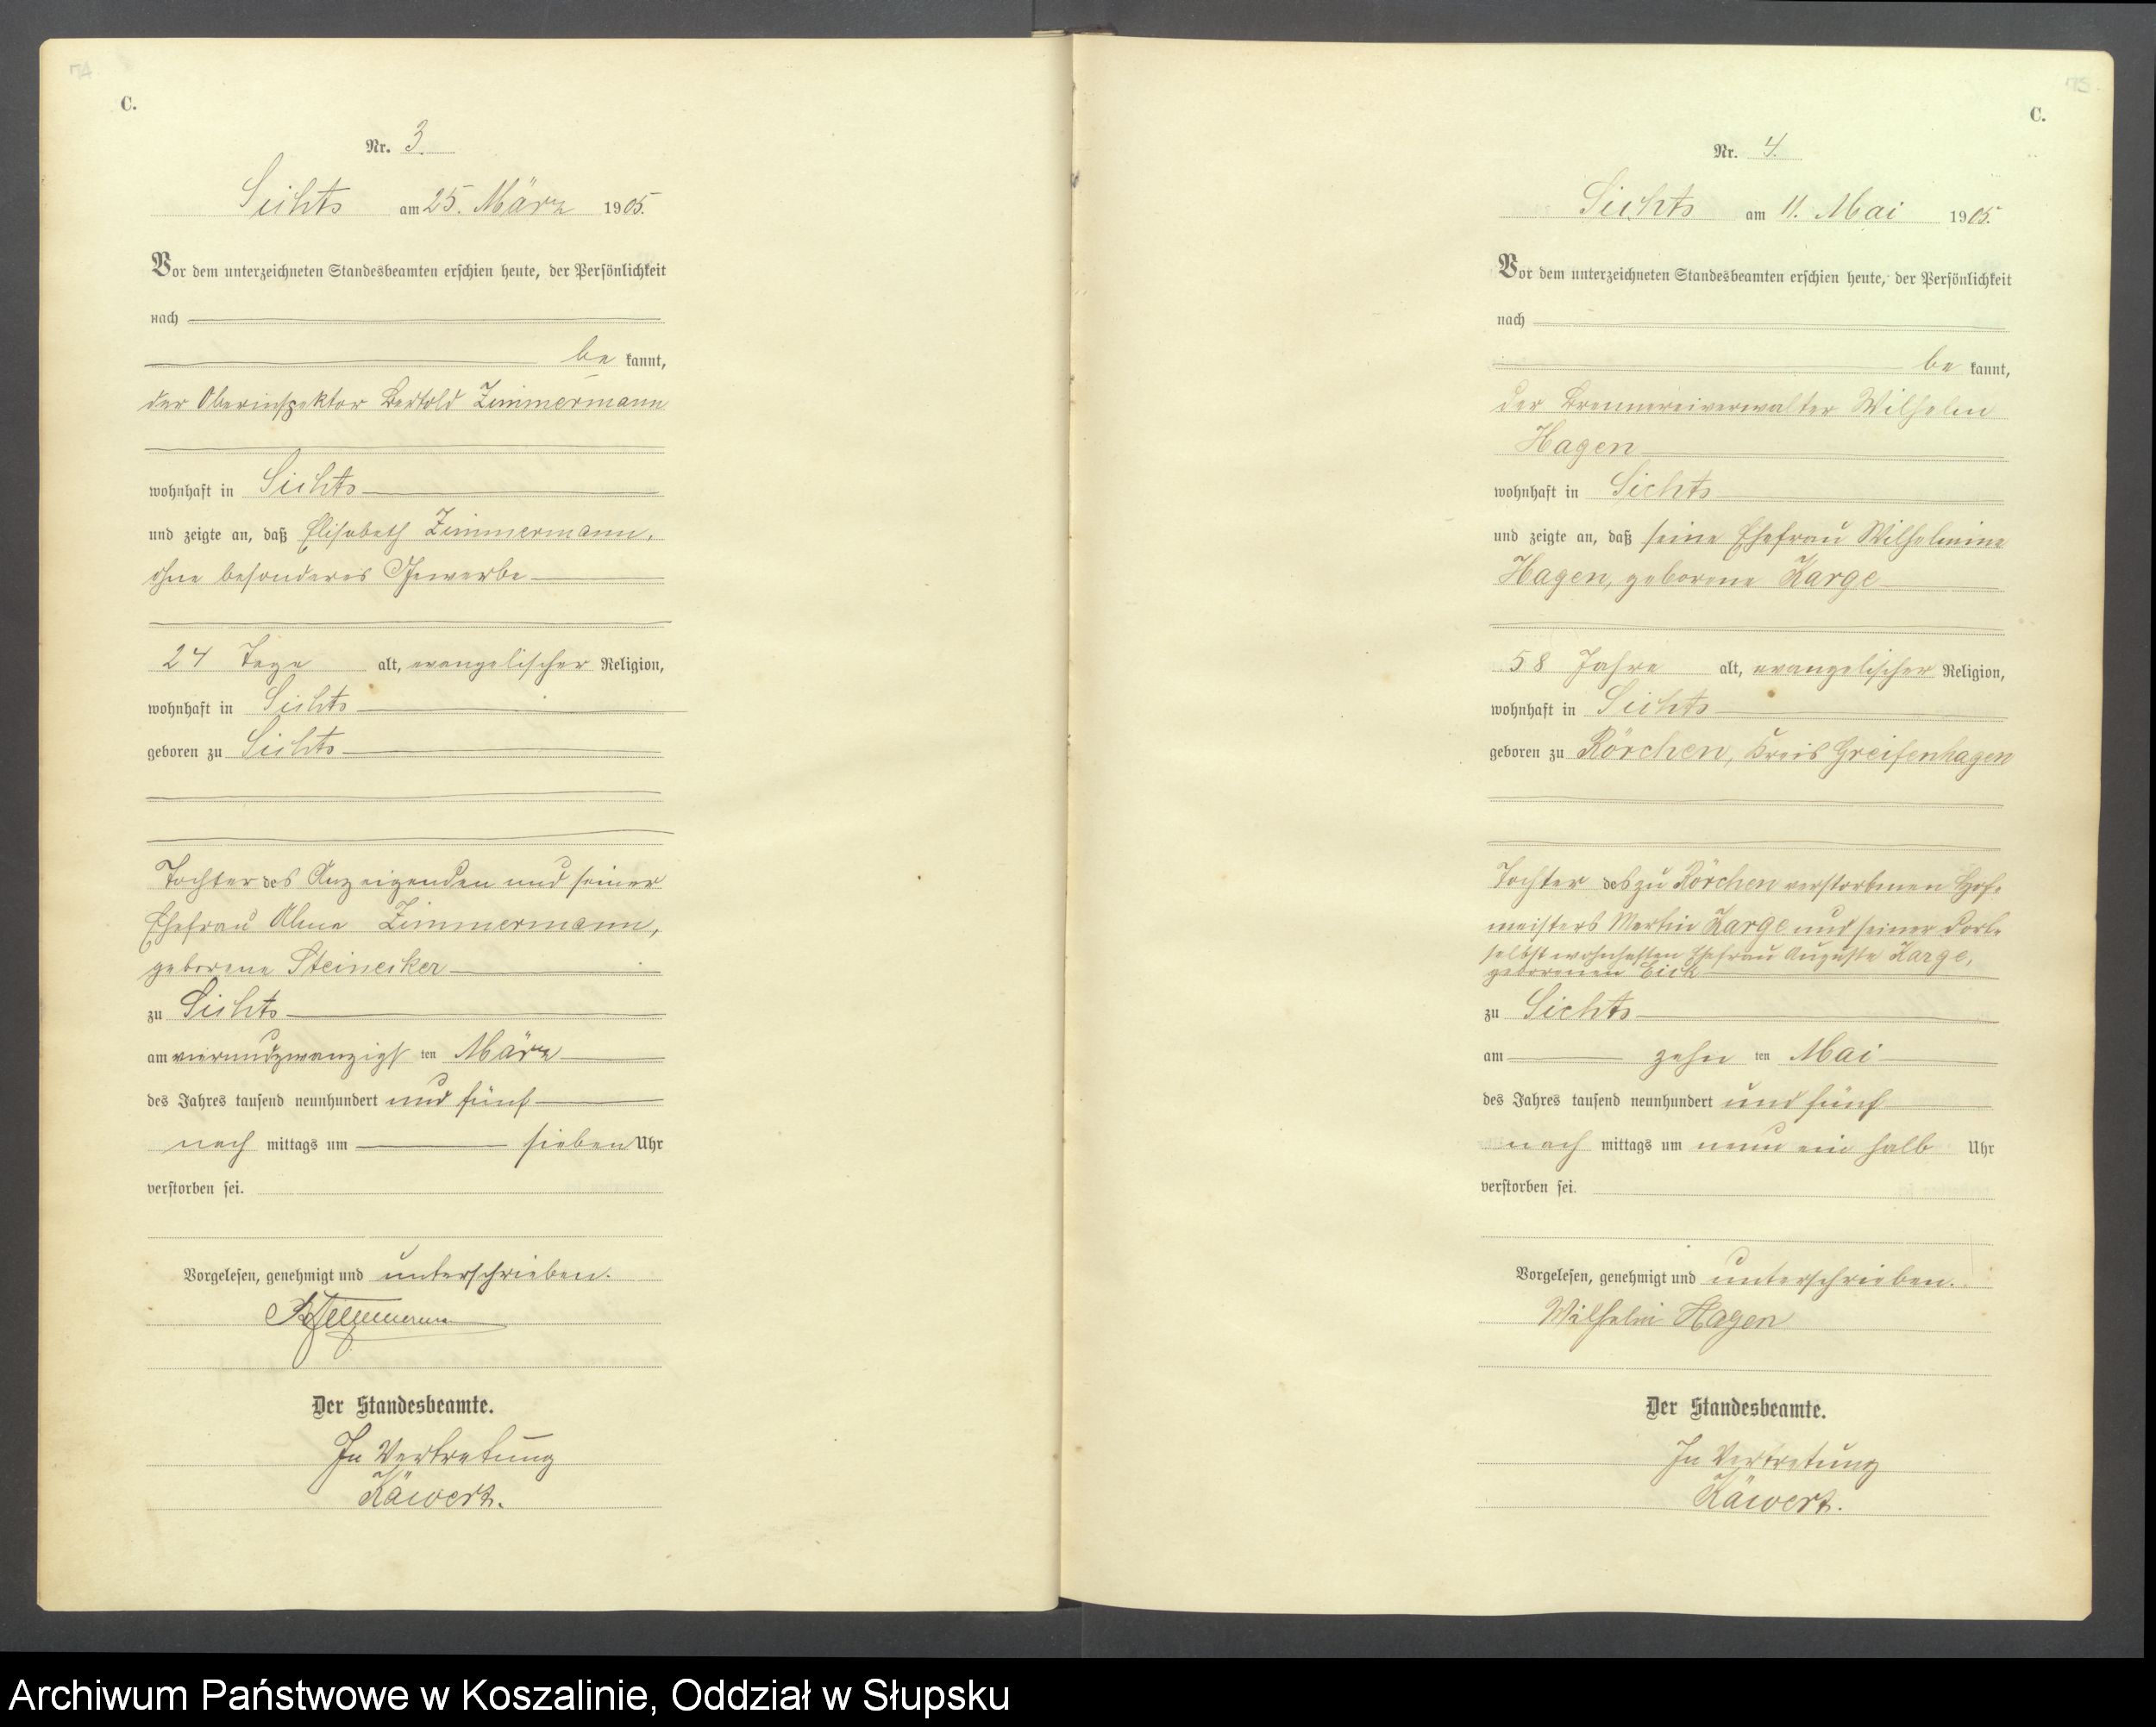 C.
Nr. 3.
Sichts am 25. März 1905.
Vor dem unterzeichneten Standesbeamten erschien heute, der Persönlichkeit
nach
be kannt,
der Oberinspektor Bertold Zimmermann
wohnhaft in Sichts
und zeigte an, daß Elisabeth Zimmermann,
ohne besonderes Gewerbe
24 Tage alt, evangelischer Religion,
wohnhaft in Sichts
geboren zu Sichts
Tochter des Anzeigenden und seiner
Ehefrau Alma Zimmermann,
geborene Steinecker
zu Sichts
am vierundzwanzigsten März
des Jahres tausend neunhundert und fünf
nach mittags um sieben Uhr
verstorben sei.
Vorgelesen, genehmigt und unterschrieben.
BZimmermann
Der Standesbeamte.
In Vertretung
Käwert.
C.
Nr. 4.
Sichts am 11. Mai 1905.
Vor dem unterzeichneten Standesbeamten erschien heute, der Persönlichkeit
nach
be kannt,
der Brennereiverwalter Wilhelm
Hagen
wohnhaft in Sichts
und zeigte an, daß seine Ehefrau Wilhelmine
Hagen, geborene Karge
58 Jahre alt, evangelischer Religion,
wohnhaft in Sichts
geboren zu Rörchen, Kreis Greifenhagen
Tochter des zu Rörchen verstorbenen Hof-
meisters Martin Karge und seiner dort-
selbst wohnhaften Ehefrau Auguste Karge,
geborenen Eick
zu Sichts
am zehn ten Mai
des Jahres tausend neunhundert und fünf
nach mittags um neun ein halb Uhr
verstorben sei.
Vorgelesen, genehmigt und unterschrieben.
Wilhelm Hagen
Der Standesbeamte.
In Vertretung
Käwert.
Archiwum Państwowe w Koszalinie, Oddział w Słupsku